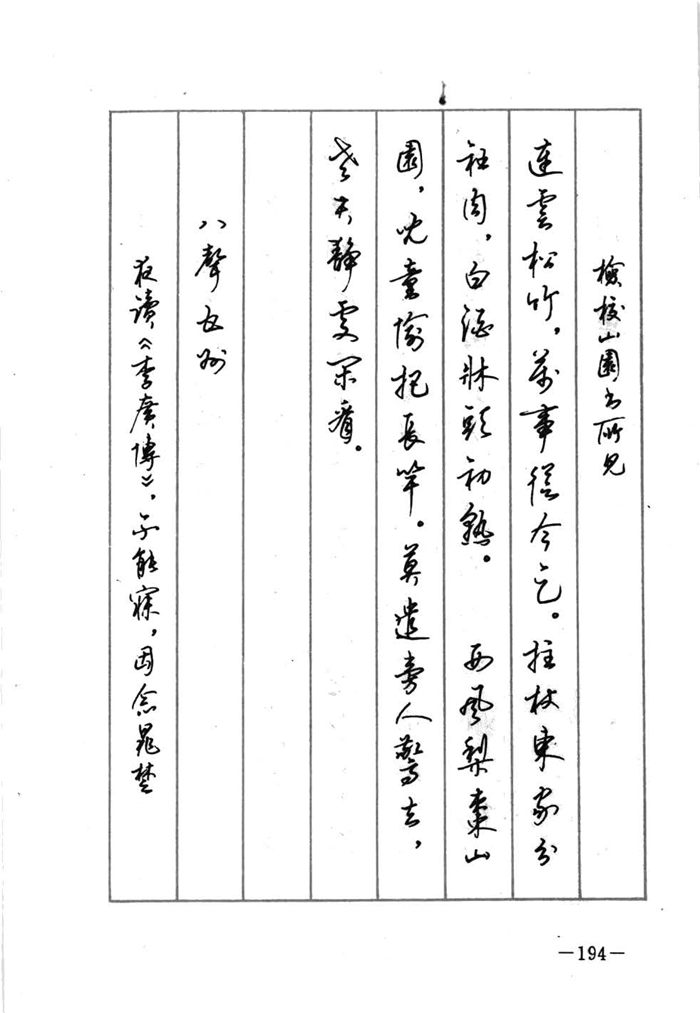 檢校山園書所見
連雲松竹，萬事從今足。拄杖東家分
社肉，白酒牀頭初熟。　西風梨棗山
園，兒童偷把長竿。莫遣旁人驚去，
老夫靜處閑看。
八聲甘州
夜讀《李廣傳》，不能寐，因念晁楚
—194—